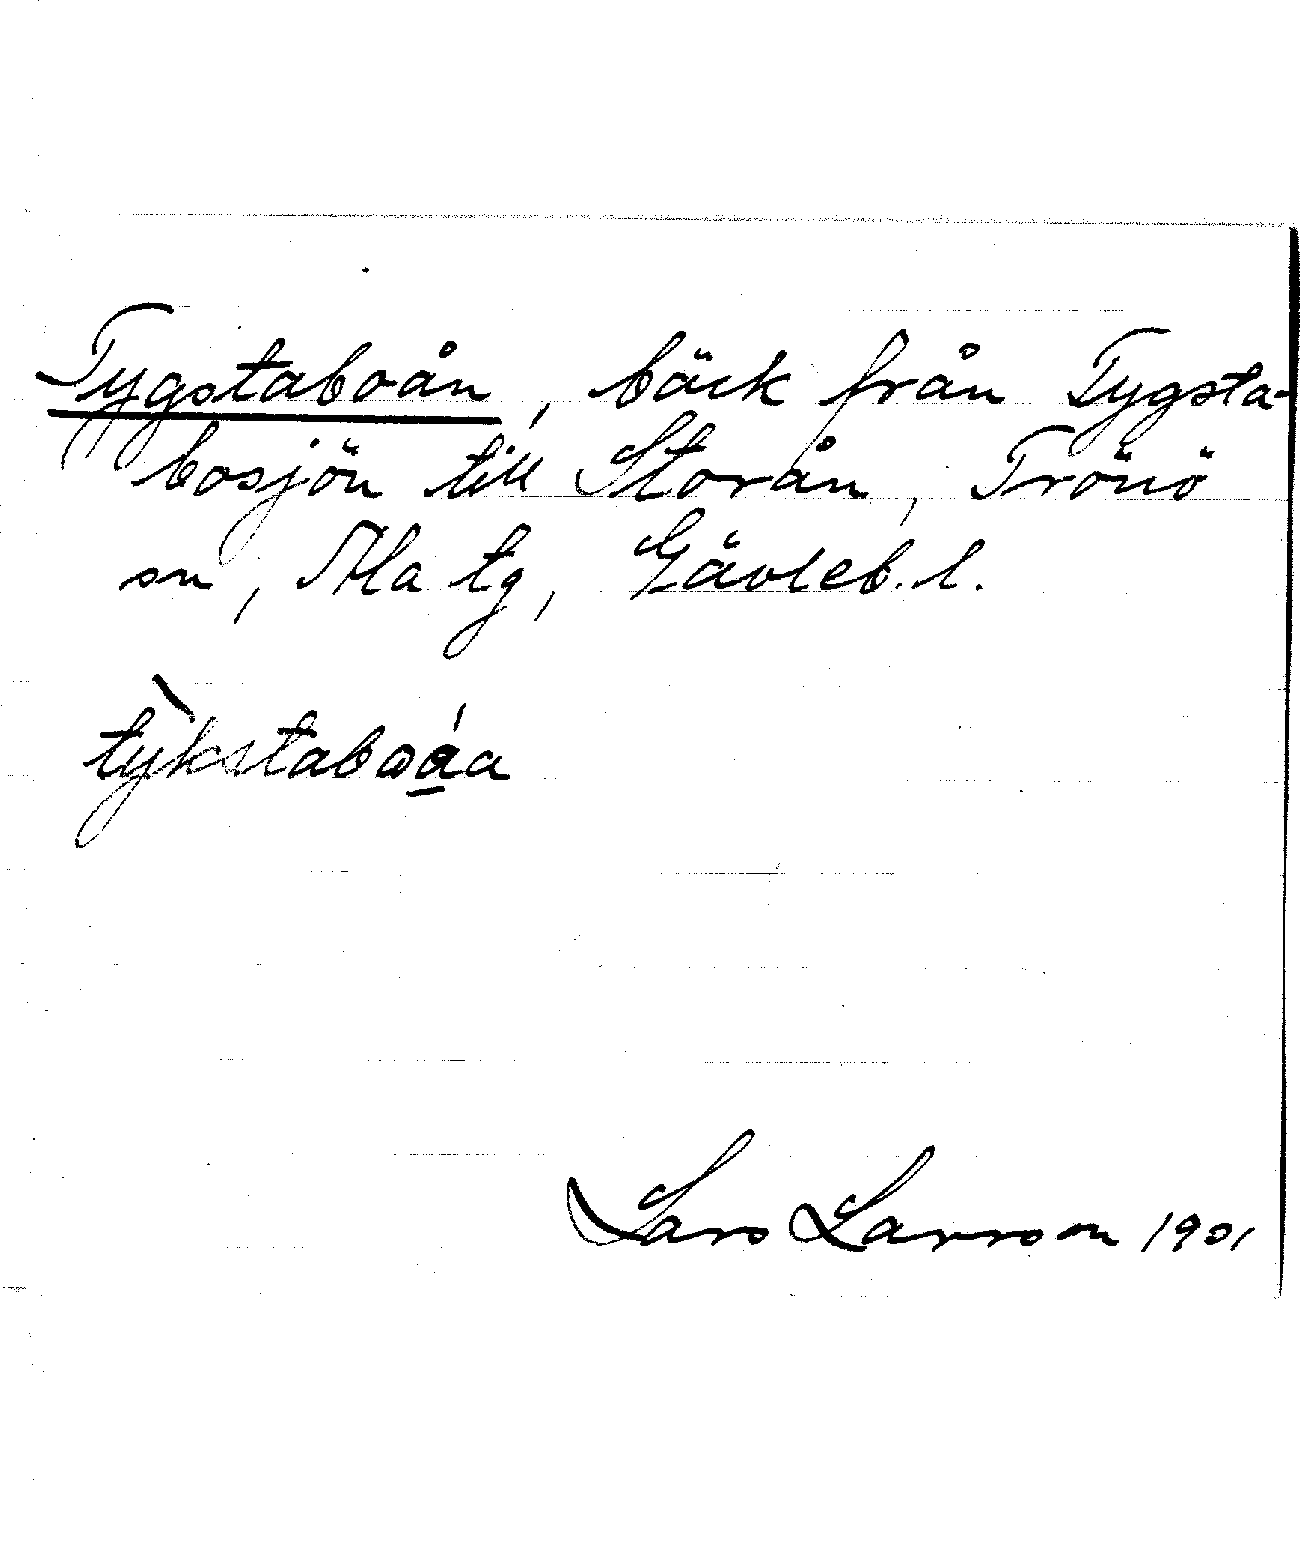 Tygstaboån, bäck från Tygsta-
bosjön till Storån, Trönö
sn, Ala tg, Gävleb. l.
tỳkstaboáa
Lars Larsson 1901